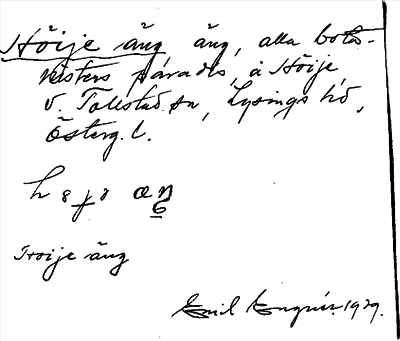 Höije äng äng, alla bota-
nisters paradis, å Höije
v. Tollstad sn, Lysings hd,
Österg. l.
Hoije äng
Emil Engqvist 1929.